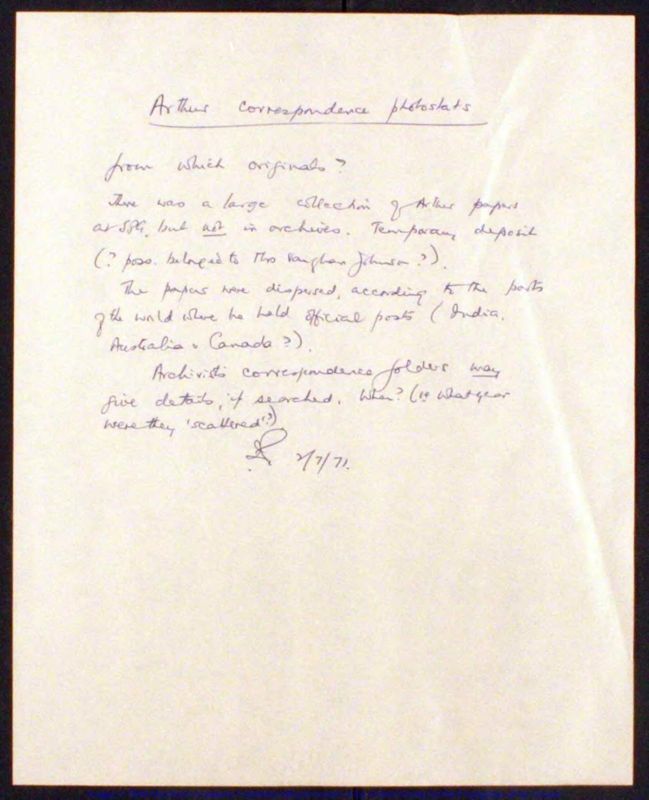 Arthur correspondence photostats
from which originals?
There was a large collection of Arthur papers
at SPG, but not in archives. Temporary deposit
(? poss. belonged to Mrs Vaughan Johnson?).
The papers were dispersed, according to the parts
of the world where he held official posts (India,
Australia & Canada?).
Archivist's correspondence folders may
give details, if searched. When? (in what year
were they 'scattered'?)
2/7/71.